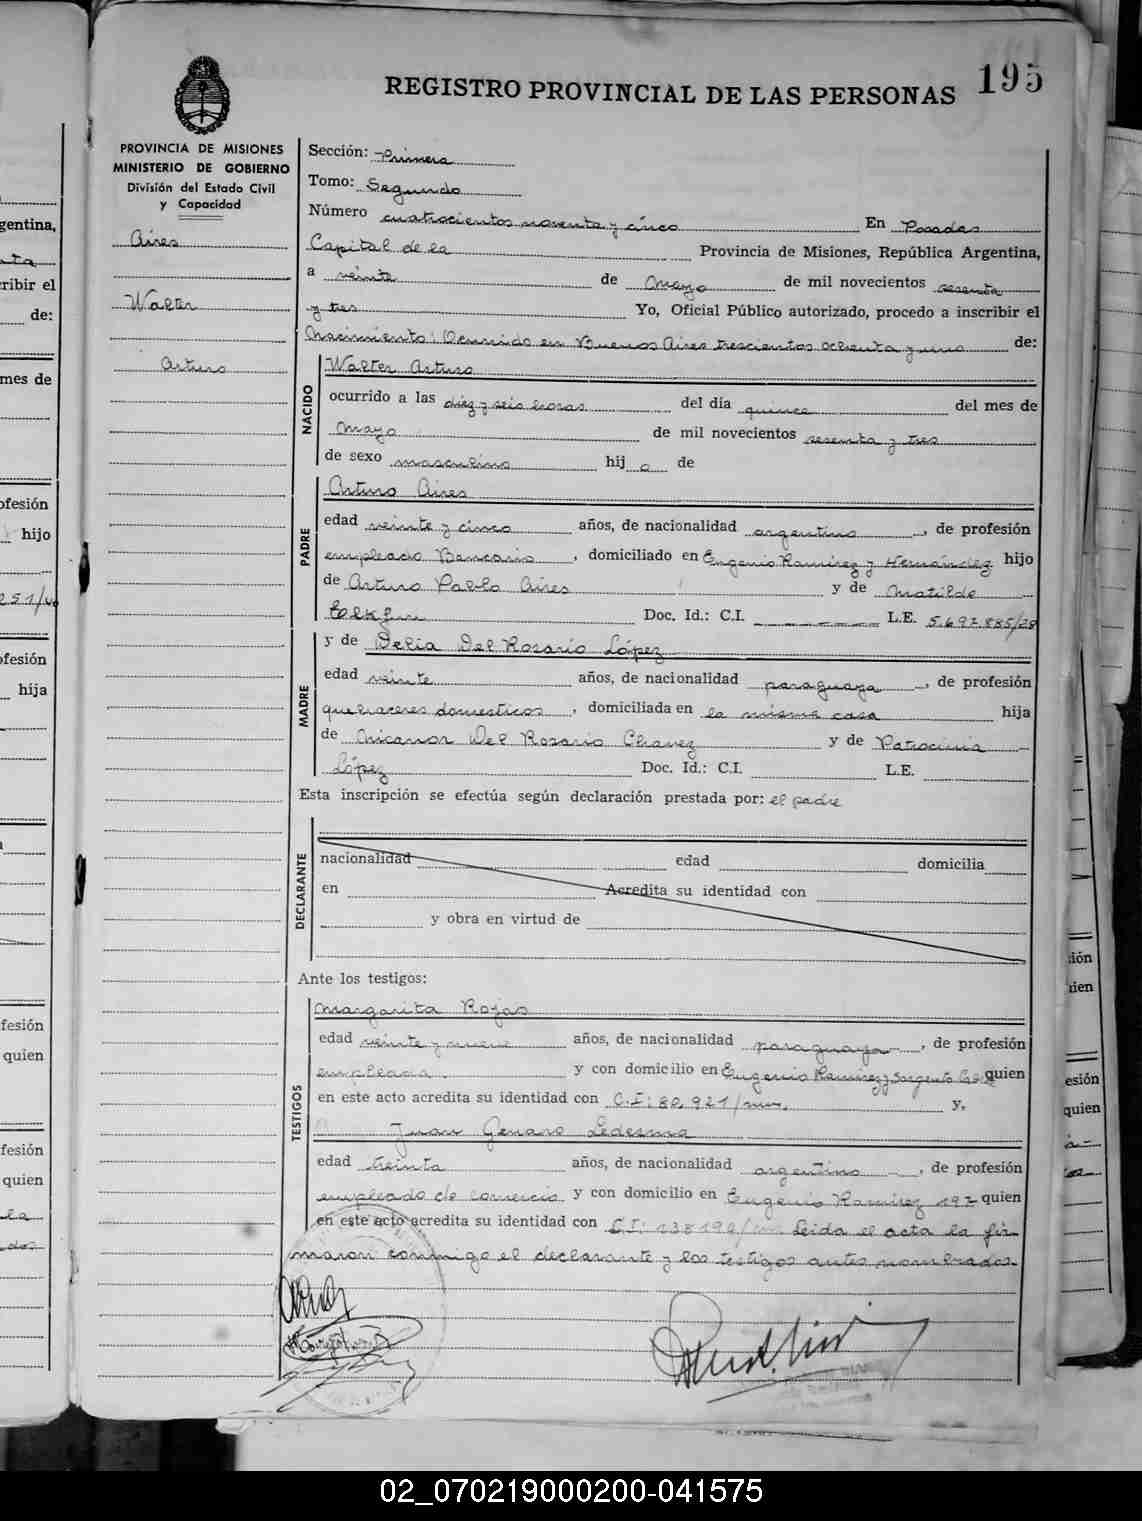 195
REGISTRO PROVINCIAL DE LAS PERSONAS
PROVINCIA DE MISIONES
MINISTERIO DE GOBIERNO
División del Estado Civil
y Capacidad
Aires
Walter
Arturo
Sección: Primera
Tomo: Segundo
Número cuatrocientos noventa y cinco En Posadas
Capital de la Provincia de Misiones, República Argentina,
a veinte de Mayo de mil novecientos sesenta
y tres Yo, Oficial Público autorizado, procedo a inscribir el
Nacimiento: Ocurrido en Buenos Aires trescientos ochenta y uno de:
NACIDO
Walter Arturo
ocurrido a las diez y seis horas del día quince del mes de
Mayo de mil novecientos sesenta y tres
de sexo masculino hij o de
PADRE
Arturo Aires
edad veinte y cinco años, de nacionalidad argentino, de profesión
empleado Bancario, domiciliado en Eugenio Ramirez y Hernández hijo
de Arturo Pablo Aires y de Matilde
Doc. Id.: C.I. L.E. 5.697.885/28
MADRE
y de Delia Del Rosario López
edad veinte años, de nacionalidad paraguaya, de profesión
quehaceres domesticos, domiciliada en la misma casa hija
de Nicanor Del Rosario Chavez y de Patrocinia
López Doc. Id.: C.I. L.E.
Esta inscripción se efectúa según declaración prestada por: el padre
DECLARANTE
nacionalidad edad domicilia
en Acredita su identidad con
y obra en virtud de
Ante los testigos:
TESTIGOS
Margarita Rojas
edad veinte y nueve años, de nacionalidad paraguaya, de profesión
empleada y con domicilio en Eugenio Ramirez y Sargento quien
en este acto acredita su identidad con C.I: 80.921/ y,
Juan Genaro Ledesma
edad treinta años, de nacionalidad argentino, de profesión
empleado de comercio y con domicilio en Eugenio Ramirez 197 quien
en este acto acredita su identidad con C.I: Leida el acta la fir-
maron conmigo el declarante y los testigos antes nombrados.
gentina,
ribir el
de:
mes de
ofesión
hijo
251/
ofesión
hija
fesión
quien
fesión
quien
la
dos
ión
uien
esión
quien
02_070219000200-041575